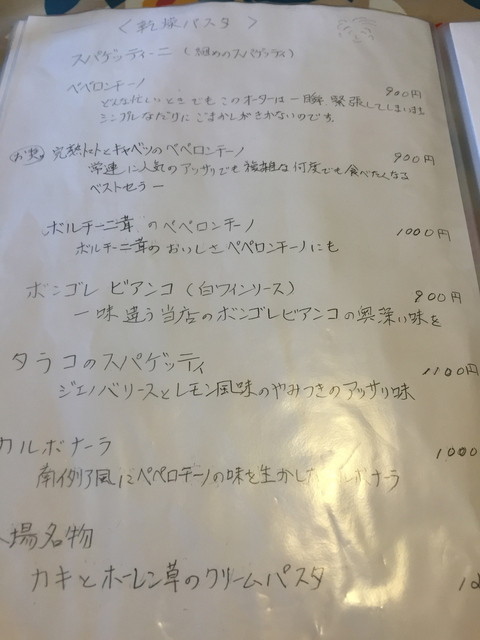 ＜乾燥パスタ＞
スパゲッティーニ（細めのスパゲッティ）
ペペロンチーノ 900円
どんな忙しいときでもこのオーダーは一瞬緊張してしまいます
シンプルなだけにごまかしがきかないのです。
完熟トマトとキャベツのペペロンチーノ 900円
常連に人気のアッサリでも複雑な何度でも食べたくなる
ベストセラー
ポルチーニ茸のペペロンチーノ 1000円
ポルチーニ茸のおいしさペペロンチーノにも
ボンゴレ ビアンコ（白ワインソース） 900円
一味違う当店のボンゴレビアンコの奥深い味を
タラコのスパゲッティ 1100円
ジェノバソースとレモン風味のやみつきのアッサリ味
カルボナーラ 1000
南イタリア風にペペロンチーノの味を生かした ルボナーラ
場名物
カキとホーレン草のクリームパスタ